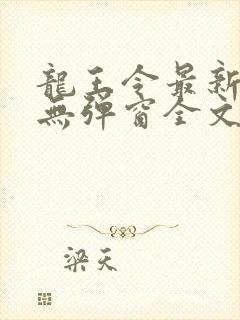 龍王令最新
無彈窗全文
梁天